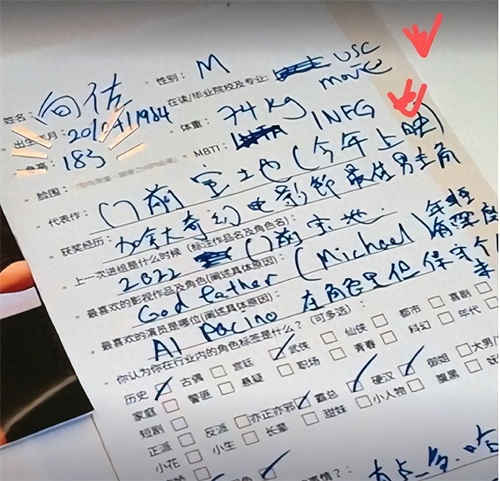 姓名： 向佐 性别： M
在读/毕业院校及专业： USC movie
出生年月： 20/04/1984 体重： 74kg
身高： 183 MBTI： INFG
脸围：
代表作： 门前宝地（今年上映）
获奖经历： 加拿大奇幻电影節最佳男主角
上一次进组是什么时候（标注作品名及角色名）：
2022 门前宝地
最喜欢的影视作品及角色(阐述具体原因)：
God father (Michael)
最喜欢的演员是哪位(阐述具体原因)：
Al Pacino 在角色里但保守个
你认为你在行业内的角色标签是什么？(可多选)：
历史 古偶 宫廷 武侠 仙侠 都市 喜剧
家庭 警匪 悬疑 职场 青春 科幻 年代
短剧
正派 反派 亦正亦邪 霸总 硬汉 御姐 大男
小花 小生 长星 甜妹 小人物 腹黑 妖
事情？：